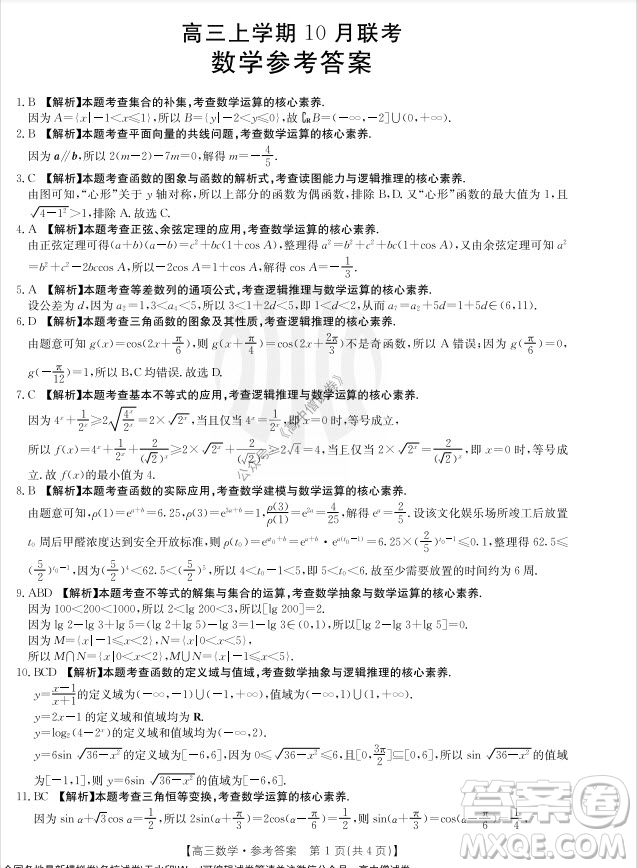 高三上学期 10 月联考
数学参考答案
1. B 【解析】本题考查集合的补集,考查数学运算的核心素养.
因为 A={x|-1<x≤1},所以 B={y|-2<y≤0},故∁RB=(-∞,-2]∪(0,+∞).
2. B 【解析】本题考查平面向量的共线问题,考查数学运算的核心素养.
因为 a∥b,所以 2(m-2)-7m=0,解得 m=-4/5.
3. C 【解析】本题考查函数的图象与函数的解析式,考查读图能力与逻辑推理的核心素养.
由图可知,“心形”关于 y 轴对称,所以上部分的函数为偶函数,排除 B,D. 又“心形”函数的最大值为 1,且
√(4-1²)>1,排除 A.故选 C.
4. A 【解析】本题考查正弦、余弦定理的应用,考查数学运算的核心素养.
由正弦定理可得(a+b)(a-b)=c²+bc(1+cos A),整理得 a²=b²+c²+bc(1+cos A),又由余弦定理可知 a²
=b²+c²-2bccos A,所以-2cos A=1+cos A,解得 cos A=-1/3.
5. A 【解析】本题考查等差数列的通项公式,考查逻辑推理与数学运算的核心素养.
设公差为 d,因为 a₂=1,3<a₄<5,所以 3<1+2d<5,即 1<d<2,从而 a₇=a₂+5d=1+5d∈(6,11).
6. D 【解析】本题考查三角函数的图象及其性质,考查数学运算的核心素养.
由题意可知 g(x)=cos(2x+π/6),则 g(x+π/4)=cos(2x+2π/3)不是奇函数,所以 A 错误. 又因为 g(π/6)=0,
g(-π/12)=1,所以 B,C 均错误. 故选 D.
7. C 【解析】本题考查基本不等式的应用,考查逻辑推理与数学运算的核心素养.
因为 4ˣ+1/2ˣ≥2√(4ˣ/2ˣ)=2×√(2ˣ),当且仅当 4ˣ=1/2ˣ,即 x=0 时,等号成立,
所以 f(x)=4ˣ+1/2ˣ+2/(√2)ˣ≥2×√(2ˣ)+2/(√2)ˣ≥2√4=4,当且仅当√(2ˣ)=1/(√2)ˣ,即 x=0 时,等号成
立.故 f(x)的最小值为 4.
8. B 【解析】本题考查函数的实际应用,考查数学建模与数学运算的核心素养.
由题意可知,ρ(1)=e^(a+b)=6.25,ρ(3)=e^(3a+b)=1,ρ(3)/ρ(1)=e^(2a)=4/25,解得 e^a=2/5. 设该文化娱乐场所竣工后放置
t₀ 周后甲醛浓度达到安全开放标准,则 ρ(t₀)=e^(at₀+b)=e^(a+b)·e^(a(t₀-1))=6.25×(2/5)^(t₀-1)≤0.1,整理得 62.5≤
(5/2)^(t₀-1),因为(5/2)⁴<62.5<(5/2)⁵,所以 4<t₀-1≤5,即 5<t₀≤6.故至少需要放置的时间约为 6 周.
9. ABD 【解析】本题考查不等式的解集与集合的运算,考查数学抽象与数学运算的核心素养.
因为 100<200<1000,所以 2<lg 200<3,所以[lg 200]=2.
因为 lg 2-lg 3+lg 5=(lg 2+lg 5)-lg 3=1-lg 3∈(0,1),所以[lg 2-lg 3+lg 5]=0.
因为 M={x|-1≤x<2},N={x|0<x<5},
所以 M∩N={x|0<x<2},M∪N={x|-1≤x<5}.
10. BCD 【解析】本题考查函数的定义域与值域,考查数学抽象与逻辑推理的核心素养.
y=(x-1)/(x+1)的定义域为(-∞,-1)∪(-1,+∞),值域为(-∞,1)∪(1,+∞).
y=2x-1 的定义域和值域均为 R.
y=log₂(4-2ˣ)的定义域和值域均为(-∞,2).
y=6sin √(36-x²)的定义域为[-6,6],因为 0≤√(36-x²)≤6,且[0,3π/2]⊆[0,6],所以 sin √(36-x²)的值域
为[-1,1],所以 y=6sin √(36-x²)的定义域和值域均为[-6,6].
11. BC 【解析】本题考查三角恒等变换,考查数学运算的核心素养.
因为 sin α+√3cos α=1/2,所以 2sin(α+π/3)=2cos(α-π/6)=1/2,所以 sin(α+π/3)=cos(α-π/6)=1/4.
【高三数学·参考答案 第 1 页(共 4 页)】
公众号:《高中僧试卷》
答案圈